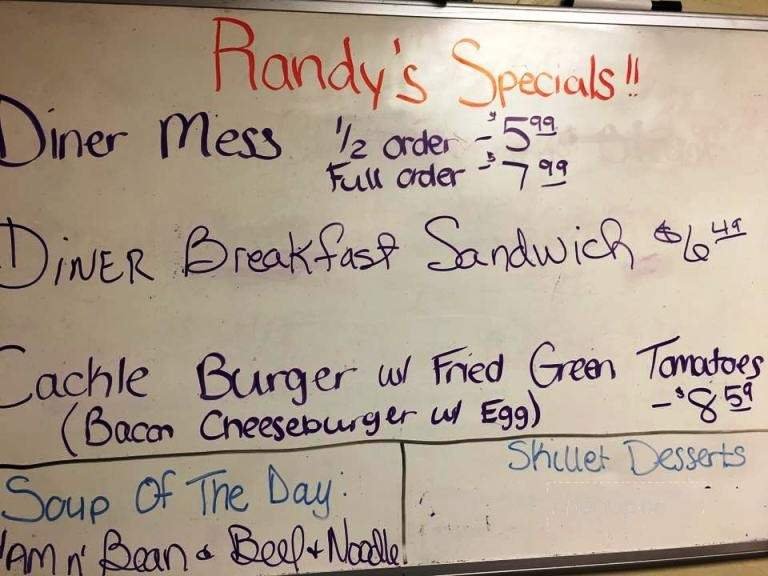 Randy's Specials!!
Diner Mess 1/2 order - $5.99
Full order - $7.99
DINER Breakfast Sandwich $6.49
Cackle Burger w/ Fried Green Tomatoes
(Bacon Cheeseburger w/ Egg) - $8.59
Soup Of The Day:
Skillet Desserts
'AM n' Bean & Beef & Noodle